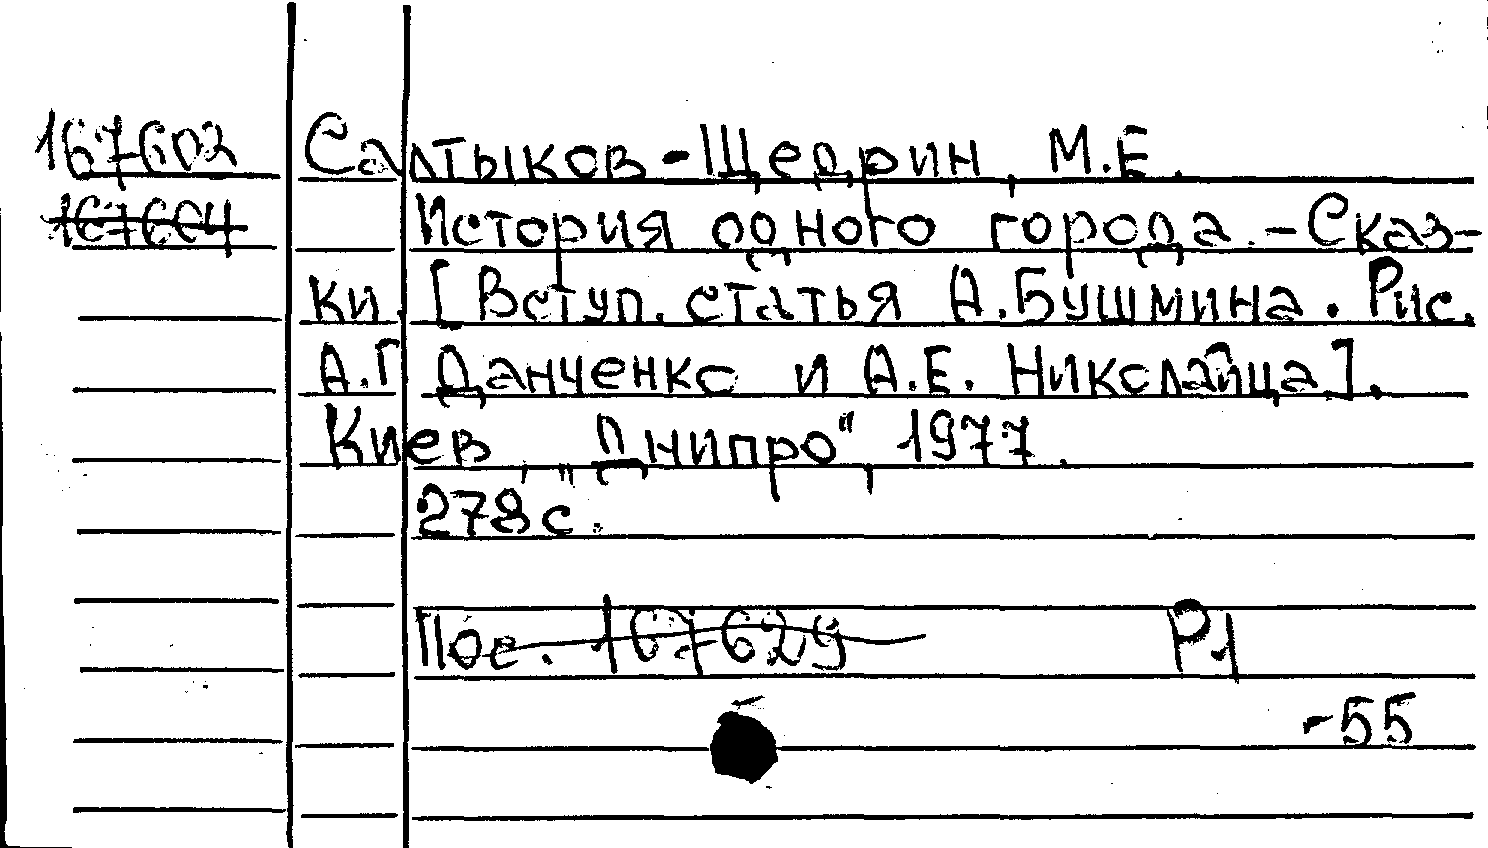 167602 Салтыков-Щедрин, М.Е.
167604 История одного города. - Сказ-
ки. [Вступ. статья А.Бушмина. Рис.
А.Г Данченко и А.Е. Николайца].
Киев, „Днипро", 1977.
278 с.
Пос. 167629 Р1
-55